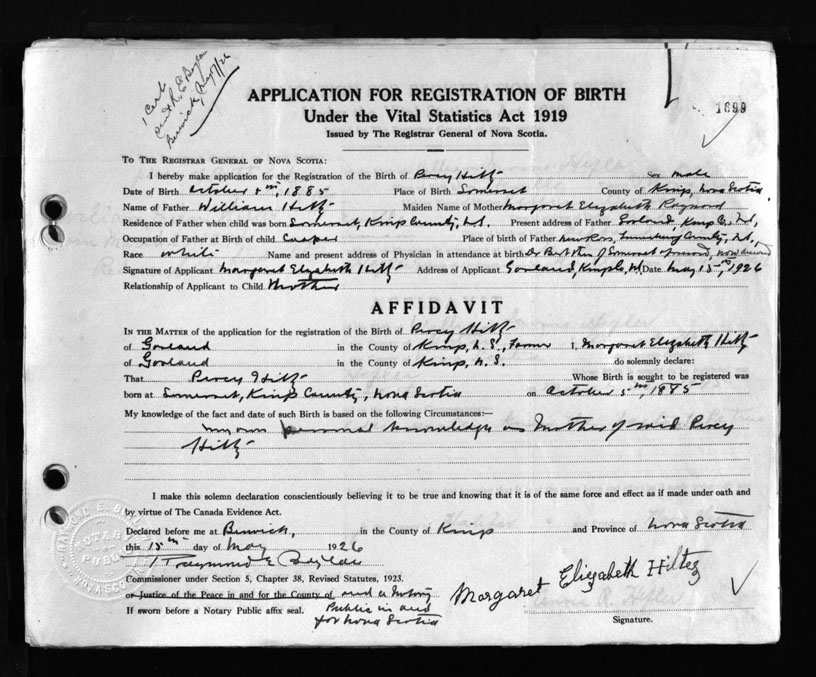 1 Cert
sent R. E. Boylan
Berwick, May 17/26
1699
APPLICATION FOR REGISTRATION OF BIRTH
Under the Vital Statistics Act 1919
Issued by The Registrar General of Nova Scotia.
TO THE REGISTRAR GENERAL OF NOVA SCOTIA:
I hereby make application for the Registration of the Birth of Percy Hiltz Sex male
Date of Birth October 5th, 1885 Place of Birth Somerset County of Kings, Nova Scotia
Name of Father William Hiltz Maiden Name of Mother Margaret Elizabeth Raynard
Residence of Father when child was born Somerset, Kings County, N.S. Present address of Father Gorland, Kings Co. N.S.,
Occupation of Father at Birth of child Cooper Place of birth of Father New Ross, Lunenburg County, N.S.,
Race white Name and present address of Physician in attendance at birth Dr. of Somerset now
Signature of Applicant Margaret Elizabeth Hiltz Address of Applicant Gorland, Kings Co., N.S. Date May 15th, 1926
Relationship of Applicant to Child Mother
AFFIDAVIT
IN THE MATTER of the application for the registration of the Birth of Percy Hiltz
of Gorland in the County of Kings, N.S., Farmer I, Margaret Elizabeth Hiltz
of Gorland in the County of Kings, N.S. do solemnly declare:
That Percy Hiltz Whose Birth is sought to be registered was
born at Somerset, Kings County, Nova Scotia on October 5th, 1885
My knowledge of the fact and date of such Birth is based on the following Circumstances:—
my own personal knowledge as Mother of said Percy
Hiltz
I make this solemn declaration conscientiously believing it to be true and knowing that it is of the same force and effect as if made under oath and
by virtue of The Canada Evidence Act.
Declared before me at Berwick, in the County of Kings and Province of Nova Scotia
this 15th day of May 1926
Raymond E
Commissioner under Section 5, Chapter 38, Revised Statutes, 1923.
or Justice of the Peace in and for the County of and a Notary
If sworn before a Notary Public affix seal. Public in and
for Nova Scotia
Margaret Elizabeth Hiltz
Signature.
RAYMOND E.
NOTARY
PUBLIC
NOVA SCOTIA